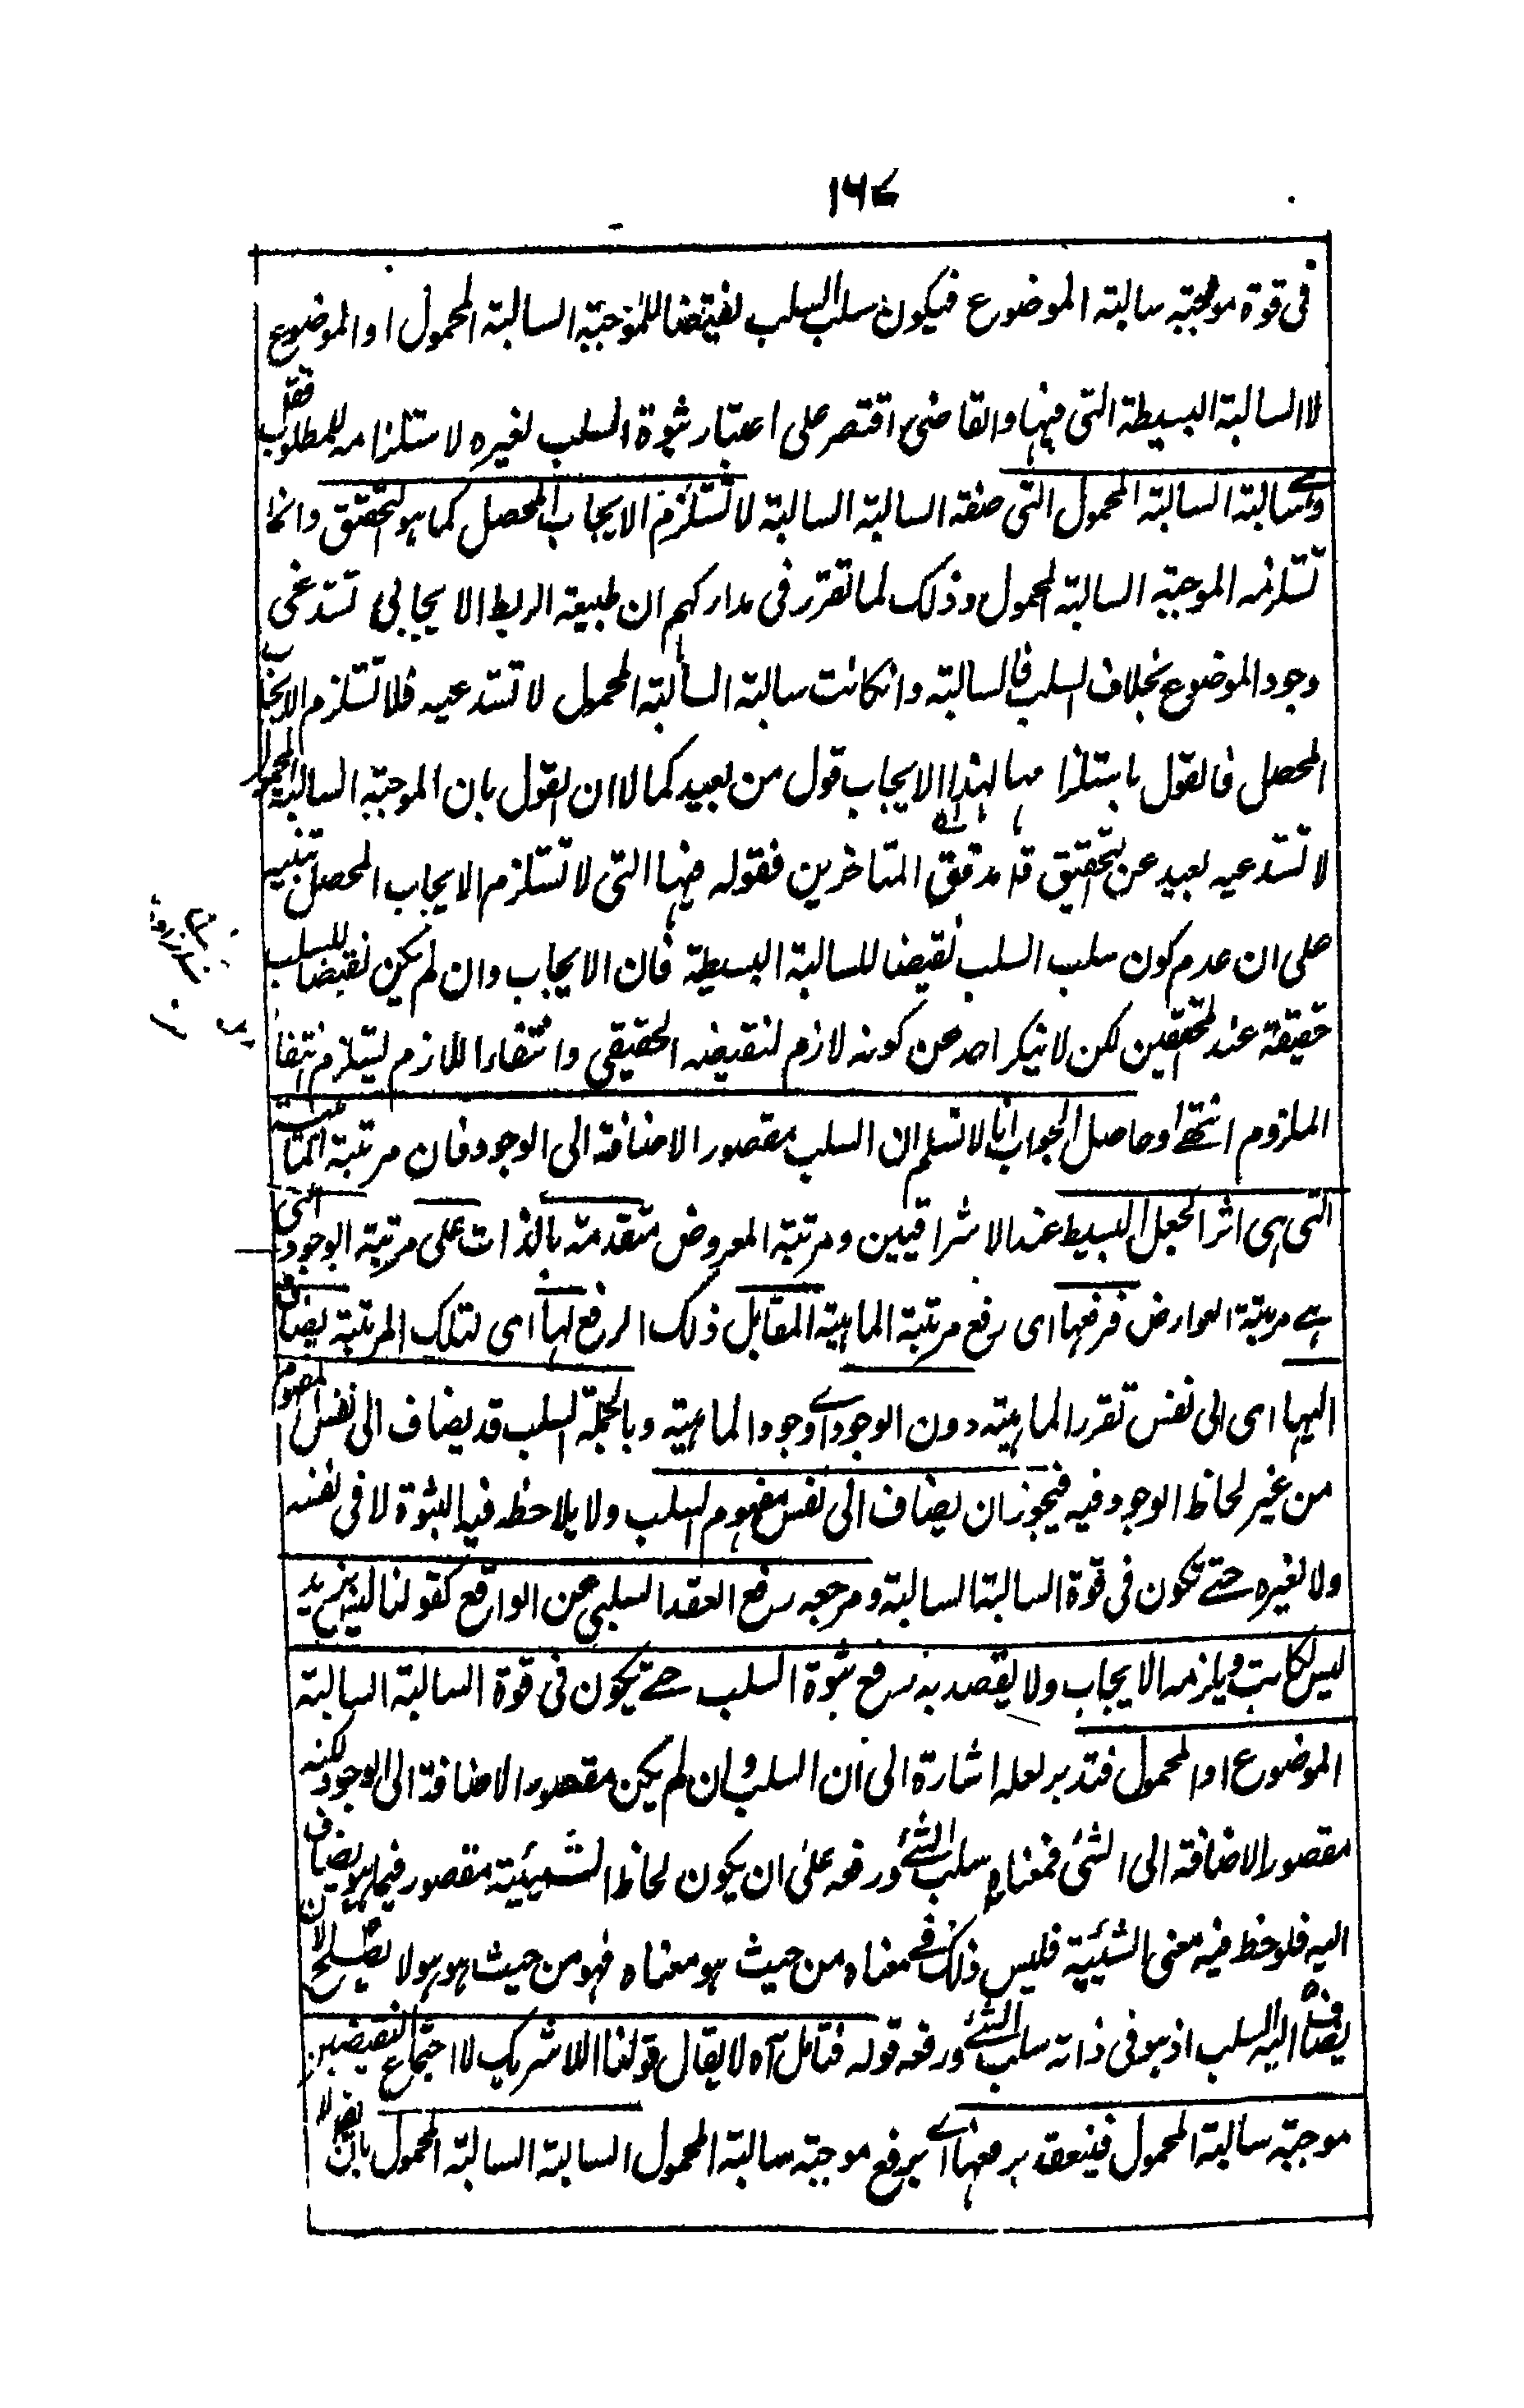 ١٦٧
فى قوة موجبة سالبة الموضوع فيكون سلب السلب نقيضا للموجبة السالبة المحمول او الموضوع
لا السالبة البسيطة التى فيها والقاضى اقتصر على اعتبار ثبوت السلب لغيره لاستلزامه للمطلوب فقل
وسالبة السالبة المحمول التى صنفه السالبة السالبة لا تستلزم الايجاب المحصل كما هو التحقيق وانما
تستلزمه الموجبة السالبة المحمول وذلك لما تقرر فى مداركهم ان طبيعة الربط الايجابى تستدعى
وجود الموضوع بخلاف السلب فى السالبة وانكانت سالبة السالبة المحمول لا تستدعيه فلا تستلزم الايجاب
المحصل فالقول باستلزامها لهذا الايجاب قول من بعيد كما لا ان القول بان الموجبة السالبة المحمول
لا تستدعيه بعيد عن التحقيق قاله مدقق المتاخرين فقوله فيها التى لا تستلزم الايجاب المحصل تنبيه
على ان عدم كون سلب السلب نقيضا للسالبة البسيطة فان الايجاب وان لم يكن نقيضا للسلب
حقيقة عند المحققين لكن لا ينكر احد عن كونه لازم لنقيضه الحقيقى وانتفاء اللازم يستلزم انتفاء
الملزوم انتهى وحاصل الجواب انا لا نسلم ان السلب مقصور الاضافة الى الوجود فان مرتبة الماهية
التى هى اثر الجعل البسيط عند الاشراقيين ومرتبة المعروض متقدمة بالذات على مرتبة الوجود التى
هے مرتبة العوارض فرفعها اى رفع مرتبة الماهية المقابل ذلك الرفع لها اى لتلك المرتبة يضاف
اليها اى الى نفس تقرر الماهية دون الوجود اى وجود الماهية وبالجملة السلب قد يضاف الى نفس المفهوم
من غير لحاظ الوجود فيه فيجوز ان يضاف الى نفس مفهوم السلب ولا يلاحظه فيه الثبوت لا فى نفسه
ولا لغيره حتے تكون فى قوة السالبة السالبة ومرجعه رفع العقد السلبى عن الواقع كقولنا ليس زيد
ليس بكاتب ويلزمه الايجاب ولا يقصد به رفع ثبوت السلب حتے يكون فى قوة السالبة السالبة
الموضوع او المحمول فتدبر لعله اشارة الى ان السلب وان لم يكن مقصور الاضافة الى الوجود لكنه
مقصور الاضافة الى الشئ فمعناه سلب الشئ ورفعه على ان يكون لحاظ الشيئية مقصور فيما هو يضاف
اليه فلو حظ فيه معنى الشيئية فليس ذلك فى معناه من حيث هو معناه فهو من حيث هو هو لا يصلح لان
يضاف اليه السلب اذ هو فى ذاته سلب الشئ ورفعه قوله فتامل آه لا يقال قولنا اللاشريك لا اجتماع النقيضين
موجبة سالبة المحمول فينعقد برفعها اى برفع موجبة سالبة المحمول السالبة السالبة المحمول بان